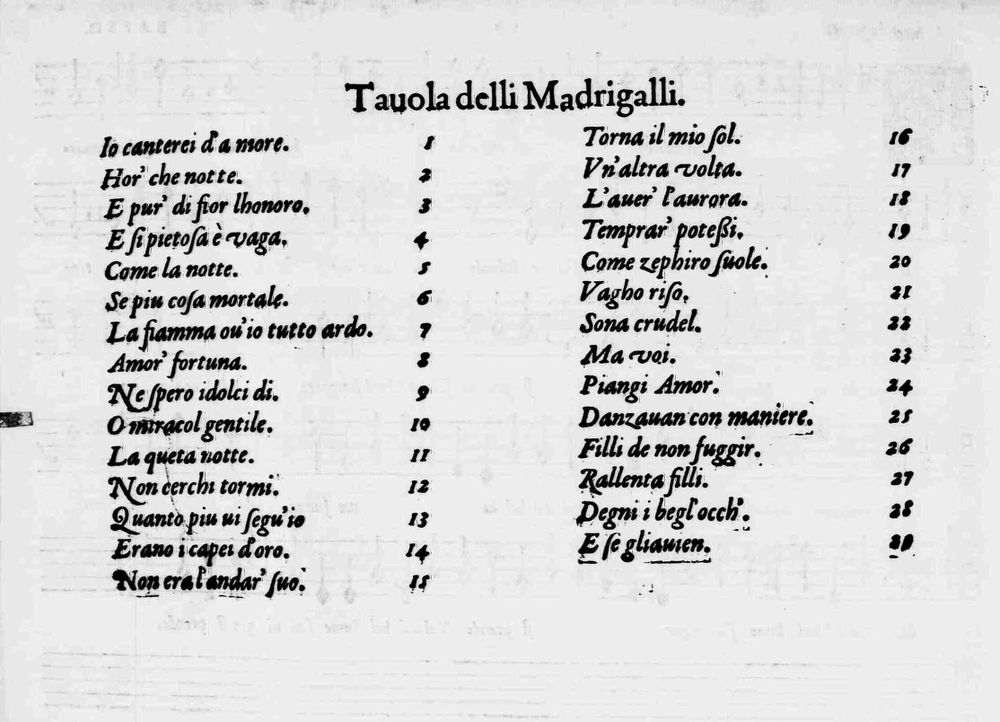 Tauola delli Madrigalli.
Io canterei d'a more. 1
Hor' che notte. 2
E pur' di fior lhonoro. 3
E si pietosa è vaga. 4
Come la notte. 5
Se piu cosa mortale. 6
La fiamma ou'io tutto ardo. 7
Amor' fortuna. 8
Ne spero idolci di. 9
O miracol gentile. 10
La queta notte. 11
Non cerchi tormi. 12
Quanto piu ui segu'io 13
Erano i capei d'oro. 14
Non era l'andar' suo 15
Torna il mio sol. 16
Vn'altra volta. 17
L'auer' l'aurora. 18
Temprar' potessi. 19
Come zephiro suole. 20
Vagho riso. 21
Sona crudel. 22
Ma voi. 23
Piangi Amor. 24
Danzauan con maniere. 25
Filli de non fuggir. 26
Rallenta filli. 27
Degni i begl'occh'. 28
E se gliauien.